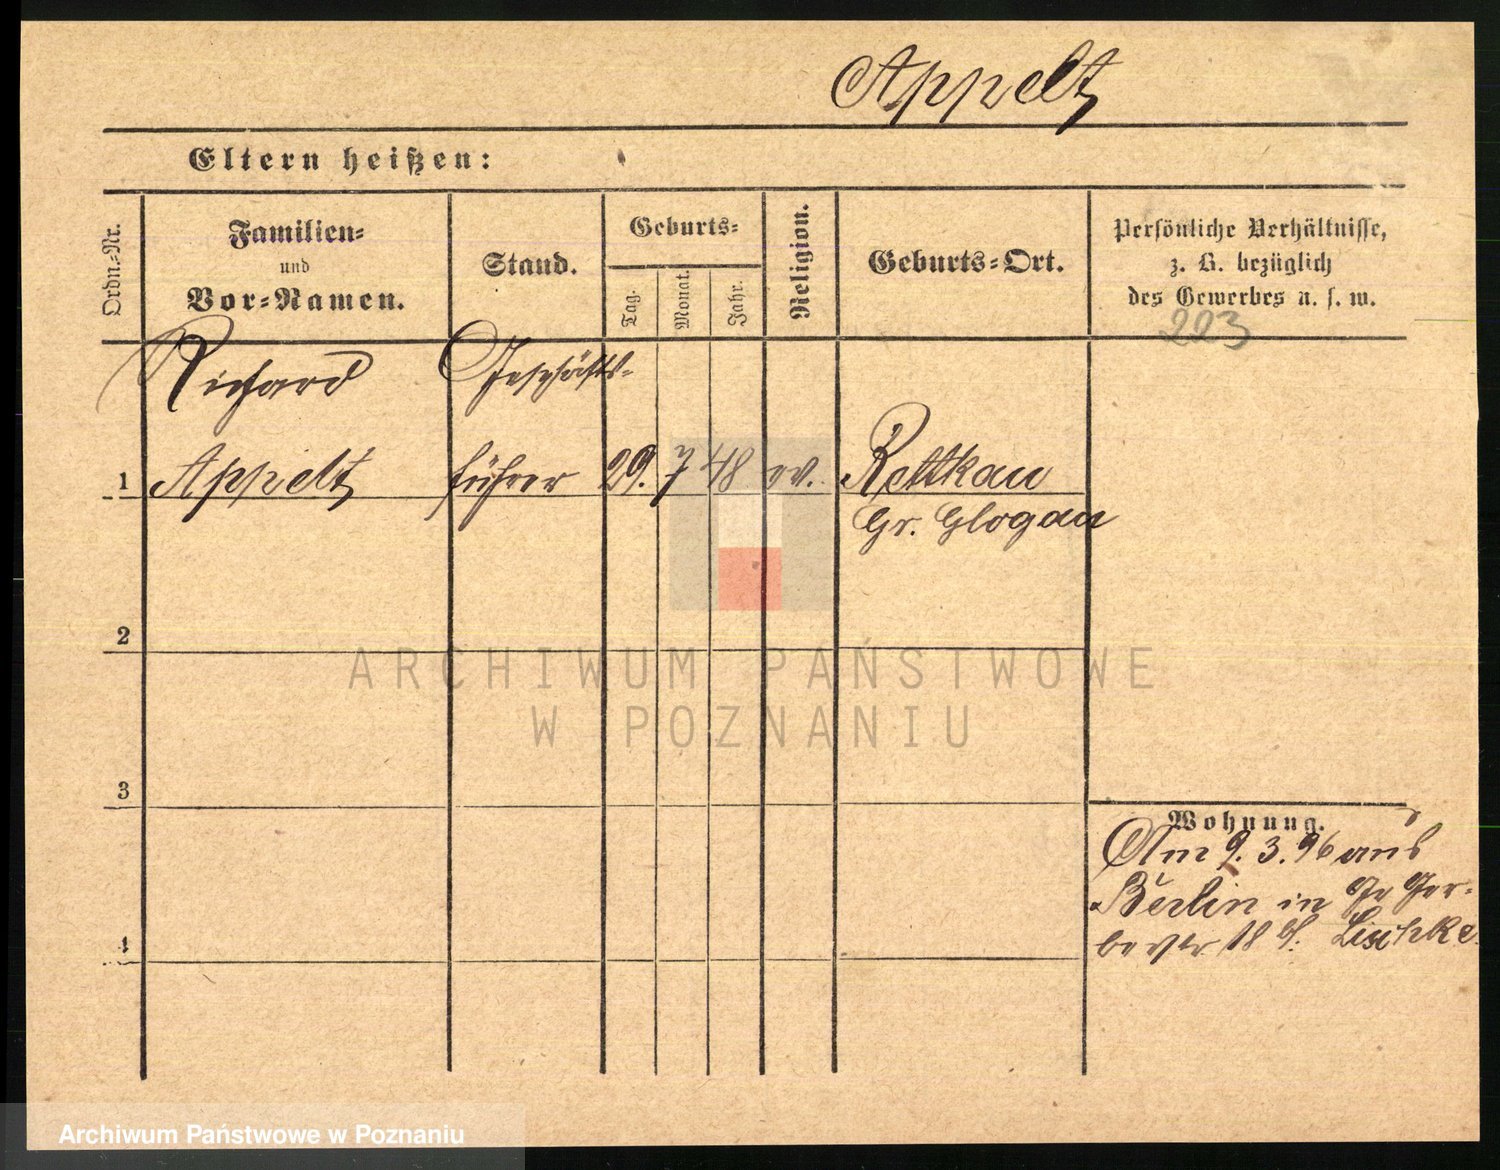 Appelt
Eltern heißen:
Ordn.-Nr.
Familien-
und
Vor-Namen.
Stand.
Geburts-
Tag.
Monat.
Jahr.
Religion.
Geburts-Ort.
Persönliche Verhältnisse,
z. B. bezüglich
des Gewerbes u. s. w.
223
Richard Geschäfts-
1 Appelt führer 29. 7 48 ev. Rettkau
Gr. Glogau
2
3
4
Wohnung.
Am 9. 3. 96 aus
Berlin in Ger-
18 Lischke
ARCHIWUM PAŃSTWOWE
W POZNANIU
Archiwum Państwowe w Poznaniu